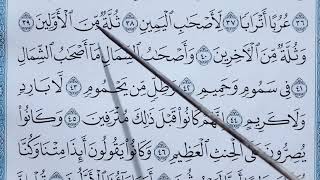 ٣٦ عُرُبًا أَتْرَابًا ٣٧ لِّأَصْحَٰبِ ٱلْيَمِينِ ٣٨ ثُلَّةٌ مِّنَ ٱلْأَوَّلِينَ ٣٩
وَثُلَّةٌ مِّنَ ٱلْأٓخِرِينَ ٤٠ وَأَصْحَٰبُ ٱلشِّمَالِ مَآ أَصْحَٰبُ ٱلشِّمَالِ
٤١ فِى سَمُومٍ وَحَمِيمٍ ٤٢ وَظِلٍّ مِّن يَحْمُومٍ ٤٣ لَّا بَارِدٍ
وَلَا كَرِيمٍ ٤٤ إِنَّهُمْ كَانُوا۟ قَبْلَ ذَٰلِكَ مُتْرَفِينَ ٤٥ وَكَانُوا۟
يُصِرُّونَ عَلَى ٱلْحِنثِ ٱلْعَظِيمِ ٤٦ وَكَانُوا۟ يَقُولُونَ أَئِذَا مِتْنَا وَكُنَّا